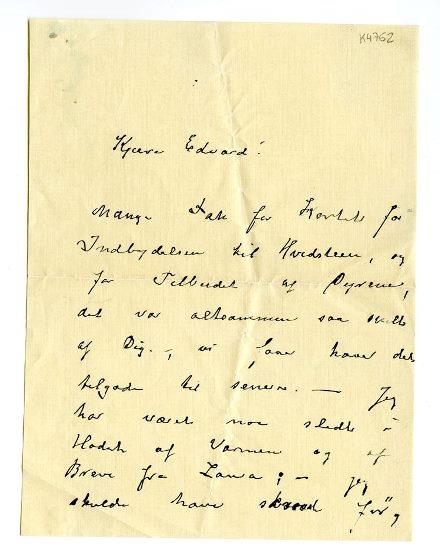 K4762
Kjære Edvard!
Mange Tak for Kortet for
Indbydelsen til Hvidsteen, og
for Tilbudet af Dyrene,
det var altsammen saa snilt
af Dig. – vi faar have det
tilgode til senere. – Jeg
har været noe sledt i
Hodet af Varmen og af
Breve fra Laura; – jeg
skulde have skreved før